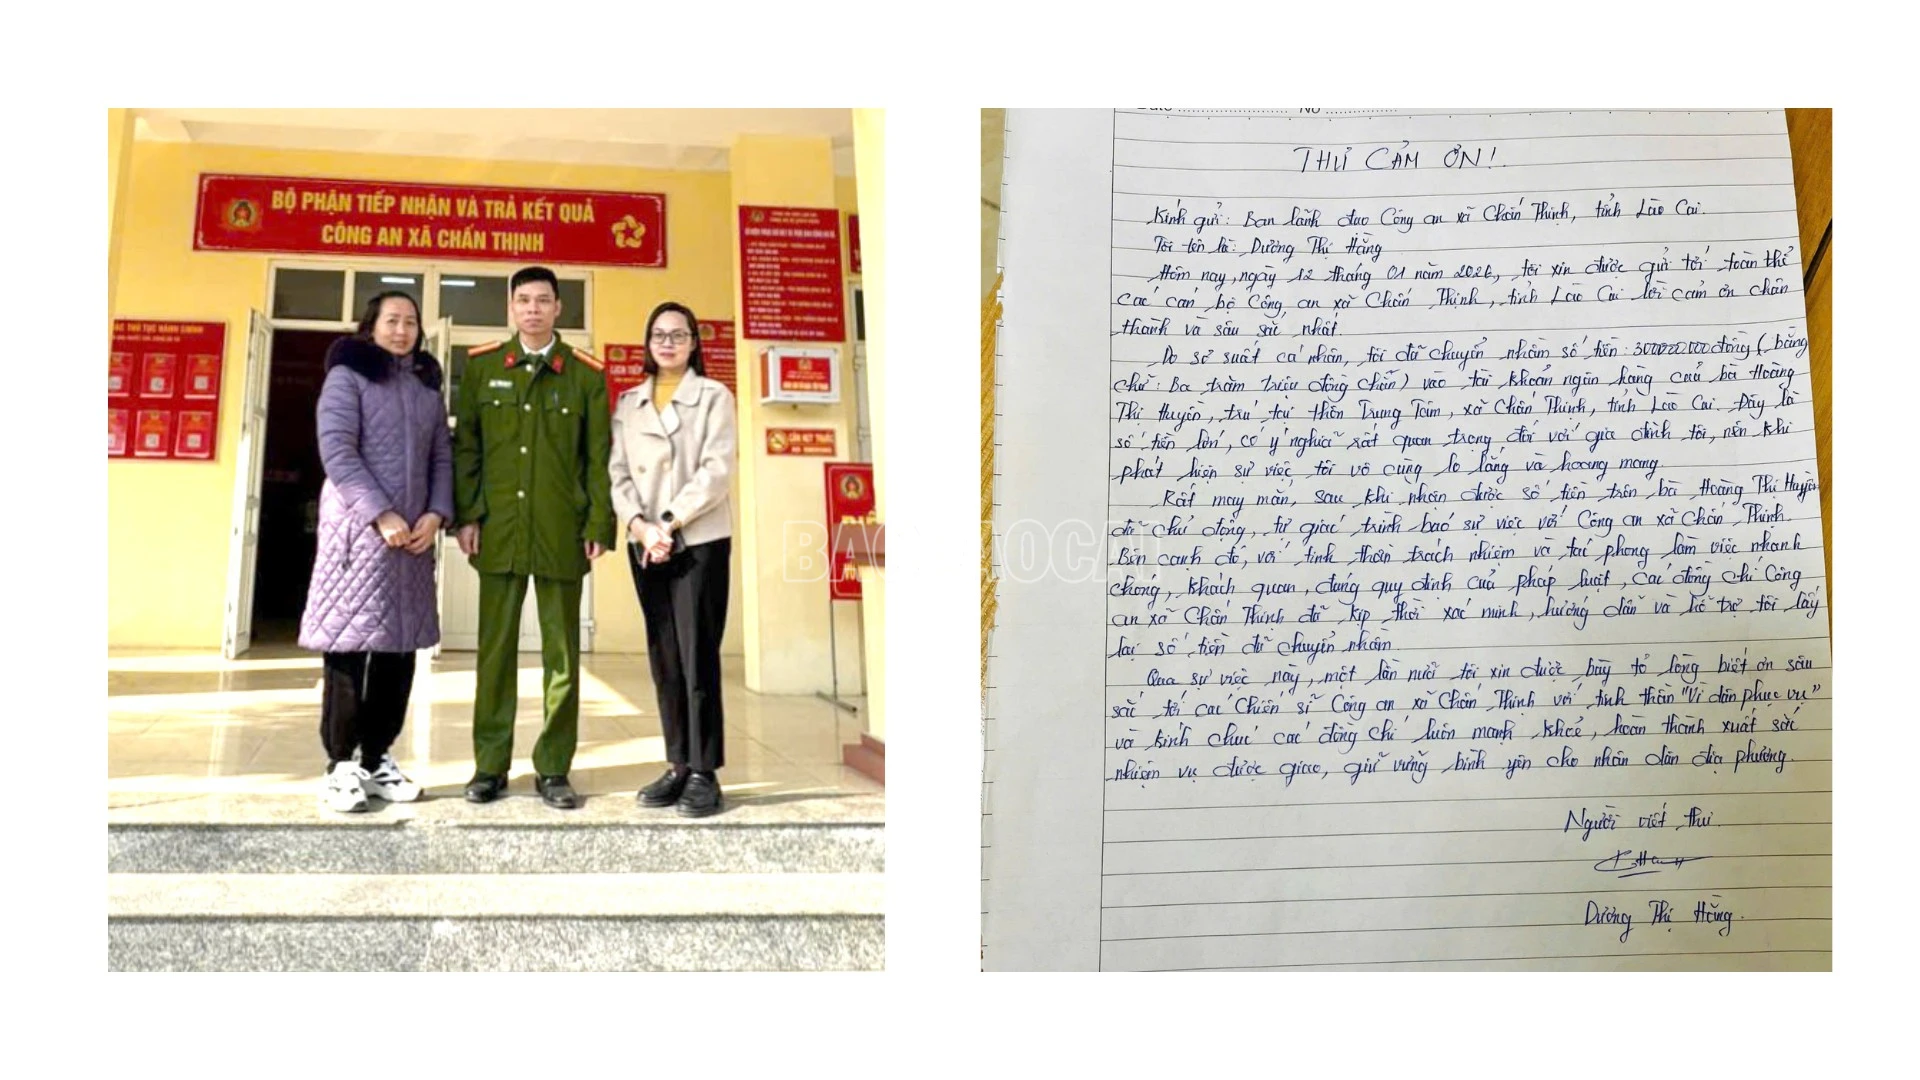 BỘ PHẬN TIẾP NHẬN VÀ TRẢ KẾT QUẢ
CÔNG AN XÃ CHẤN THỊNH
THỦ TỤC HÀNH CHÍNH
LỊCH TIẾP
BAOLAOCAI
Date No
THƯ CẢM ƠN!
Kính gửi: Ban lãnh đạo Công an xã Chấn Thịnh, tỉnh Lào Cai.
Tôi tên là: Dương Thị Hằng
Hôm nay, ngày 12 tháng 01 năm 2026, tôi xin được gửi tới toàn thể
các cán bộ Công an xã Chấn Thịnh, tỉnh Lào Cai lời cảm ơn chân
thành và sâu sắc nhất.
Do sơ suất cá nhân, tôi đã chuyển nhầm số tiền: 300.000.000 đồng (bằng
chữ: Ba trăm triệu đồng chẵn) vào tài khoản ngân hàng của bà Hoàng
Thị Huyền, trú tại thôn Trung Tâm, xã Chấn Thịnh, tỉnh Lào Cai. Đây là
số tiền lớn, có ý nghĩa rất quan trọng đối với gia đình tôi, nên khi
phát hiện sự việc, tôi vô cùng lo lắng và hoang mang.
Rất may mắn, sau khi nhận được số tiền trên bà Hoàng Thị Huyền
đã chủ động, tự giác trình báo sự việc với Công an xã Chấn Thịnh.
Bên cạnh đó, với tinh thần trách nhiệm và tác phong làm việc nhanh
chóng, khách quan, đúng quy định của pháp luật, các đồng chí Công
an xã Chấn Thịnh đã kịp thời xác minh, hướng dẫn và hỗ trợ tôi lấy
lại số tiền đã chuyển nhầm.
Qua sự việc này, một lần nữa tôi xin được bày tỏ lòng biết ơn sâu
sắc tới các chiến sĩ Công an xã Chấn Thịnh với tinh thần "Vì dân phục vụ"
và kính chúc các đồng chí luôn mạnh khoẻ, hoàn thành xuất sắc
nhiệm vụ được giao, giữ vững bình yên cho nhân dân địa phương.
Người viết thư
Dương Thị Hằng.